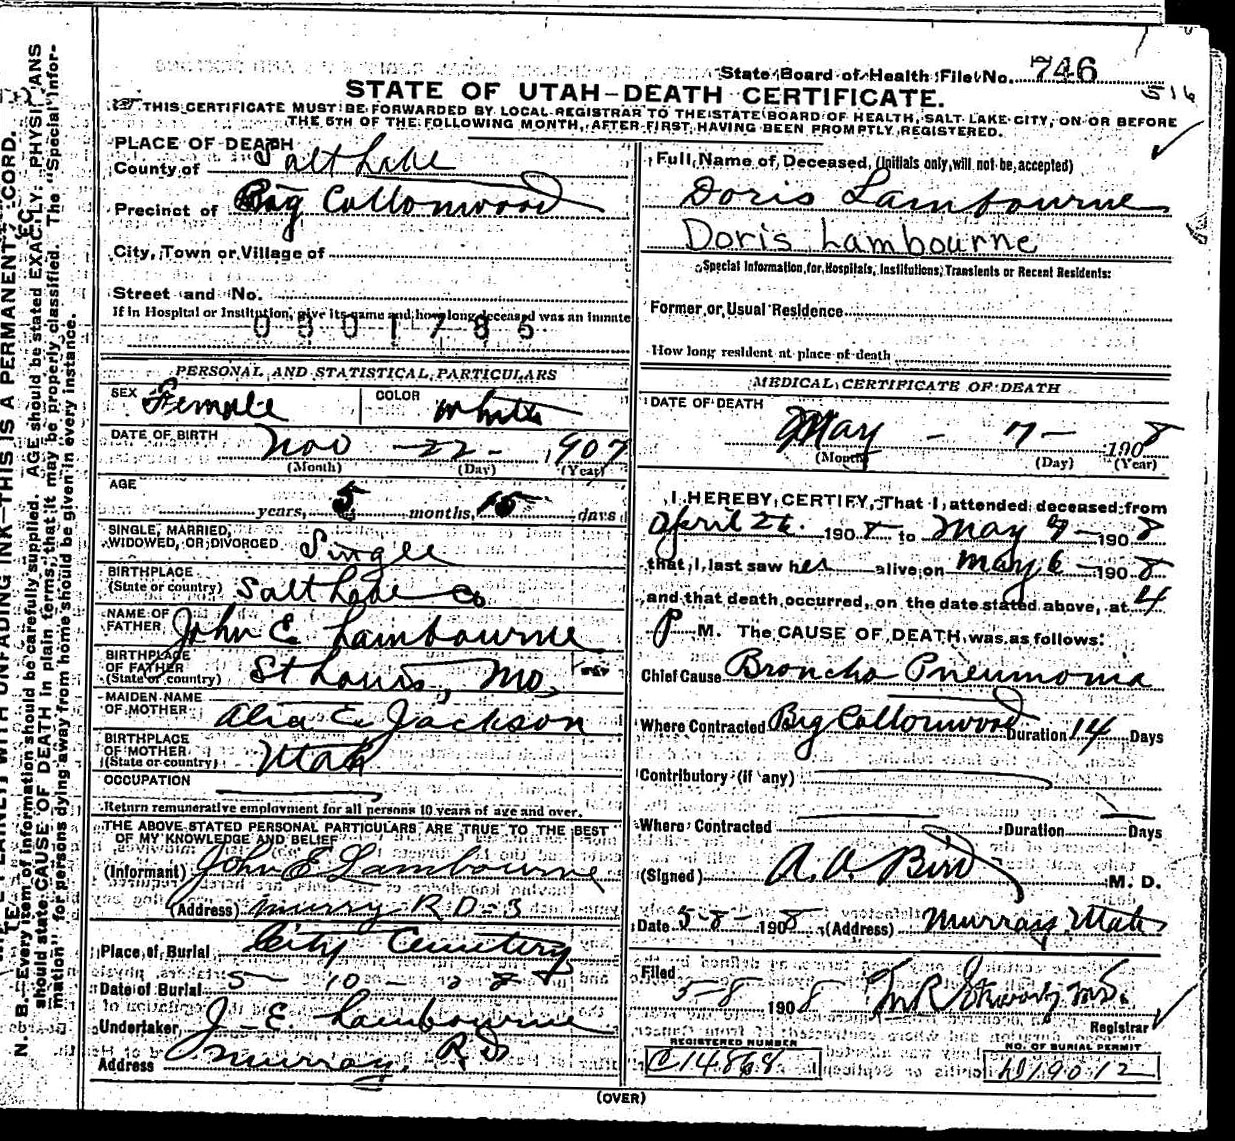 State Board of Health File No. 746
516
STATE OF UTAH—DEATH CERTIFICATE.
THIS CERTIFICATE MUST BE FORWARDED BY LOCAL REGISTRAR TO THE STATE BOARD OF HEALTH, SALT LAKE CITY, ON OR BEFORE
THE 5TH OF THE FOLLOWING MONTH, AFTER FIRST HAVING BEEN PROMPTLY REGISTERED.
PLACE OF DEATH
County of Salt Lake
Precinct of Big Cottonwood
City, Town or Village of
Street and No.
If in Hospital or Institution, give its name and how long deceased was an inmate
0301785
PERSONAL AND STATISTICAL PARTICULARS
SEX Female COLOR White
DATE OF BIRTH Nov — 22 — 1907
(Month) (Day) (Year)
AGE
years, 5 months, 15 days
SINGLE, MARRIED,
WIDOWED, OR DIVORCED Single
BIRTHPLACE
(State or country) Salt Lake Co
NAME OF
FATHER John E. Lambourne
BIRTHPLACE
OF FATHER
(State or country) St Louis, Mo,
MAIDEN NAME
OF MOTHER E. Jackson
BIRTHPLACE
OF MOTHER
(State or country) Utah
OCCUPATION
Return remunerative employment for all persons 10 years of age and over.
THE ABOVE STATED PERSONAL PARTICULARS ARE TRUE TO THE BEST
OF MY KNOWLEDGE AND BELIEF
(Informant) John E Lambourne
(Address) Murry R D - 3
Place of Burial City Cemetery
Date of Burial 5 - 10 - 08
Undertaker J. E. Lambourne
Address Murray, R D
Full Name of Deceased, (Initials only will not be accepted)
Doris Lambourne
Doris Lambourne
Special Information for Hospitals, Institutions, Transients or Recent Residents:
Former or Usual Residence
How long resident at place of death
MEDICAL CERTIFICATE OF DEATH
DATE OF DEATH
May — 7 — 1908
(Month) (Day) (Year)
I HEREBY CERTIFY, That I attended deceased from
April 26. 1908 to May 7 — 1908
that I last saw her alive on May 6 — 1908
and that death occurred, on the date stated above, at 4
P M. The CAUSE OF DEATH was as follows:
Chief Cause Broncho Pneumonia
Where Contracted Big Cottonwood Duration 14 Days
Contributory (if any)
Where Contracted Duration Days
(Signed) A. A. Bird M. D.
Date 5-8- 1908 (Address) Murray, Utah
Filed 5-8 1908
Registrar
REGISTERED NUMBER
C14868
NO. OF BURIAL PERMIT
D19012
(OVER)
N. B.—Every item of information should be carefully supplied. AGE should be stated EXACTLY. PHYSICIANS
should state CAUSE OF DEATH in plain terms, that it may be properly classified. The "Special Infor-
mation" for persons dying away from home should be given in every instance.
WITH UNFADING INK—THIS IS A PERMANENT